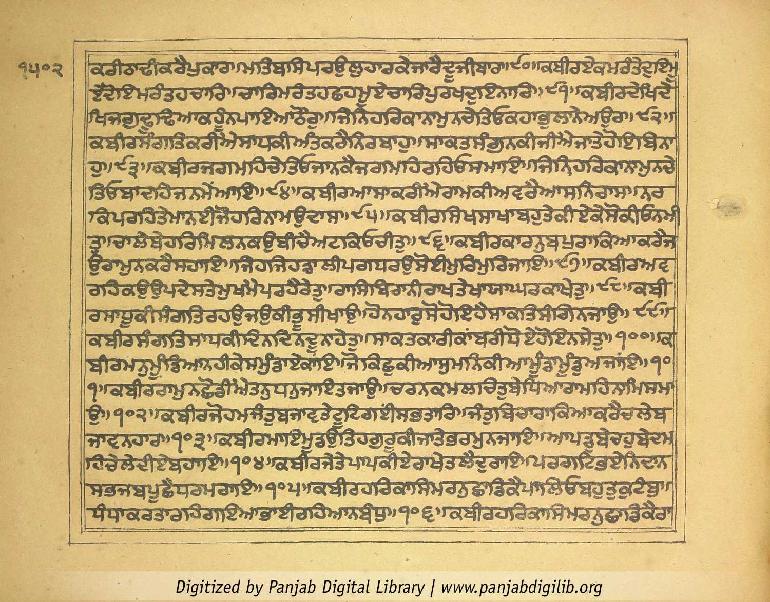 ੧੫੦੨
ਕਰੀਠਾਢੀਕਰੈਪੁਕਾਰ॥ਮਤਿਬਸਿਪਰਉਲੁਹਾਰਕੇਜਾਰੈਦੂਜੀਬਾਰ॥੯੦॥ਕਬੀਰਏਕਮਰੰਤੇਦੁਇਮੂ
ਏਦੋਇਮਰੰਤਹਚਾਰਿ॥ਚਾਰਿਮਰੰਤਹਛਹਮੂਏਚਾਰਿਪੁਰਖਦੁਇਨਾਰਿ॥੯੧॥ਕਬੀਰਦੇਖਿਦੇ
ਖਿਜਗੁਢੂੰਢਿਆਕਹੂੰਨਪਾਇਆਠੌਰੁ॥ਜਿਨਿਹਰਿਕਾਨਾਮੁਨਚੇਤਿਓਕਹਾਭੁਲਾਨੇਅਉਰ॥੯੨॥
ਕਬੀਰਸੰਗਤਿਕਰੀਐਸਾਧਕੀਅੰਤਿਕਰੈਨਿਰਬਾਹੁ॥ਸਾਕਤਸੰਗੁਨਕੀਜੀਐਜਾਤੇਹੋਇਬਿਨਾ
ਹੁ॥੯੩॥ਕਬੀਰਜਗਮਹਿਚੇਤਿਓਜਾਨਿਕੈਜਗਮਹਿਰਹਿਓਸਮਾਇ॥ਜਿਨਿਹਰਿਕਾਨਾਮੁਨਚੇ
ਤਿਓਬਾਦਹਿਜਨਮੇਂਆਇ॥੯੪॥ਕਬੀਰਆਸਾਕਰੀਐਰਾਮਕੀਅਵਰੈਆਸਨਿਰਾਸ॥ਨਰ
ਕਿਪਰਹਿਤੇਮਾਨਈਜੋਹਰਿਨਾਮਉਦਾਸ॥੯੫॥ਕਬੀਰਸਿਖਸਾਖਾਬਹੁਤੇਕੀਏਕੇਸੋਕੀਓਨਮੀ
ਤੁ॥ਚਾਲੇਥੇਹਰਿਮਿਲਨਕਉਬੀਚੈਅਟਕਿਓਚੀਤੁ॥੯੬॥ਕਬੀਰਕਾਰਨੁਬਪੁਰਾਕਿਆਕਰੈਜ
ਉਰਾਮੁਨਕਰੈਸਹਾਇ॥ਜਿਹਜਿਹਡਾਲੀਪਗਧਰਉਸੋਈਮੁਰਿਮੁਰਿਜਾਇ॥੯੭॥ਕਬੀਰਅਵ
ਰਹਿਕਉਉਪਦੇਸਤੇਮੁਖਮੈਪਰਿਹੈਰੇਤੁ॥ਰਾਸਿਬਿਰਾਨੀਰਾਖਤੇਖਾਯਾਘਰਕਾਖੇਤੁ॥੯੮॥ਕਬੀ
ਰਸਾਧੂਕੀਸੰਗਤਿਰਹਉਜਉਕੀਭੂਸੀਖਾਉ॥ਹੋਨਹਾਰੁਸੋਹੋਇਹੈਸਾਕਤਿਸੰਗਿਨਜਾਉ॥੯੯॥
ਕਬੀਰਸੰਗਤਿਸਾਧਕੀਦਿਨਦਿਨਦੂਨਾਹੇਤੁ॥ਸਾਕਤਕਾਰੀਕਾਂਬਰੀਧੋਏਹੋਇਨਸੇਤੁ॥੧੦੦॥ਕ
ਬੀਰਮਨੁਮੂੰਡਿਆਨਹੀਕੇਸਮੁੰਡਾਏਕਾਂਇ॥ਜੋਕਿਛੁਕੀਆਸੁਮਨਿਕੀਆਮੂੰਡਾਮੂੰਡੁਅਜਾਂਇ॥੧੦
੧॥ਕਬੀਰਰਾਮੁਨਛੋਡੀਐਤਨੁਧਨੁਜਾਇਤਜਾਉ॥ਚਰਨਕਮਲਚਿਤੁਬੇਧਿਆਰਾਮਹਿਨਾਮਿਸਮਾ
ਉ॥੧੦੨॥ਕਬੀਰਜੋਹਮਜੰਤੁਬਜਾਵਤੇਟੂਟਿਗਈਸਭਤਾਰਿ॥ਜੰਤੁਬਿਚਾਰਾਕਿਆਕਰੈਚਲੇਬ
ਜਾਵਨਹਾਰ॥੧੦੩॥ਕਬੀਰਮਾਇਮੂੰਡਉਤਿਹਗੁਰੂਕੀਜਾਤੇਭਰਮੁਨਜਾਇ॥ਆਪਡੁਬੇਚਹੁਬੇਦਮ
ਹਿਚੇਲੇਦੀਏਬਹਾਇ॥੧੦੪॥ਕਬੀਰਜੇਤੇਪਾਪਕੀਏਰਾਖੇਤਲੈਦੁਰਾਇ॥ਪਰਗਟਿਭਏਨਿਦਾਨ
ਸਭਜਬਪੂਛੈਧਰਮਰਾਇ॥੧੦੫॥ਕਬੀਰਹਰਿਕਾਸਿਮਰਨੁਛਾਡਿਕੈਪਾਲਿਓਬਹੁਤੁਕੁਟੰਬੁ॥
ਧੰਧਾਕਰਤਾਰਹਿਗਇਆਭਾਈਰਹਿਆਨਬੰਧੁ॥੧੦੬॥ਕਬੀਰਹਰਿਕਾਸਿਮਰਨੁਛਾਡਿਕੈਰਾ
Digitized by Panjab Digital Library | www.panjabdigilib.org